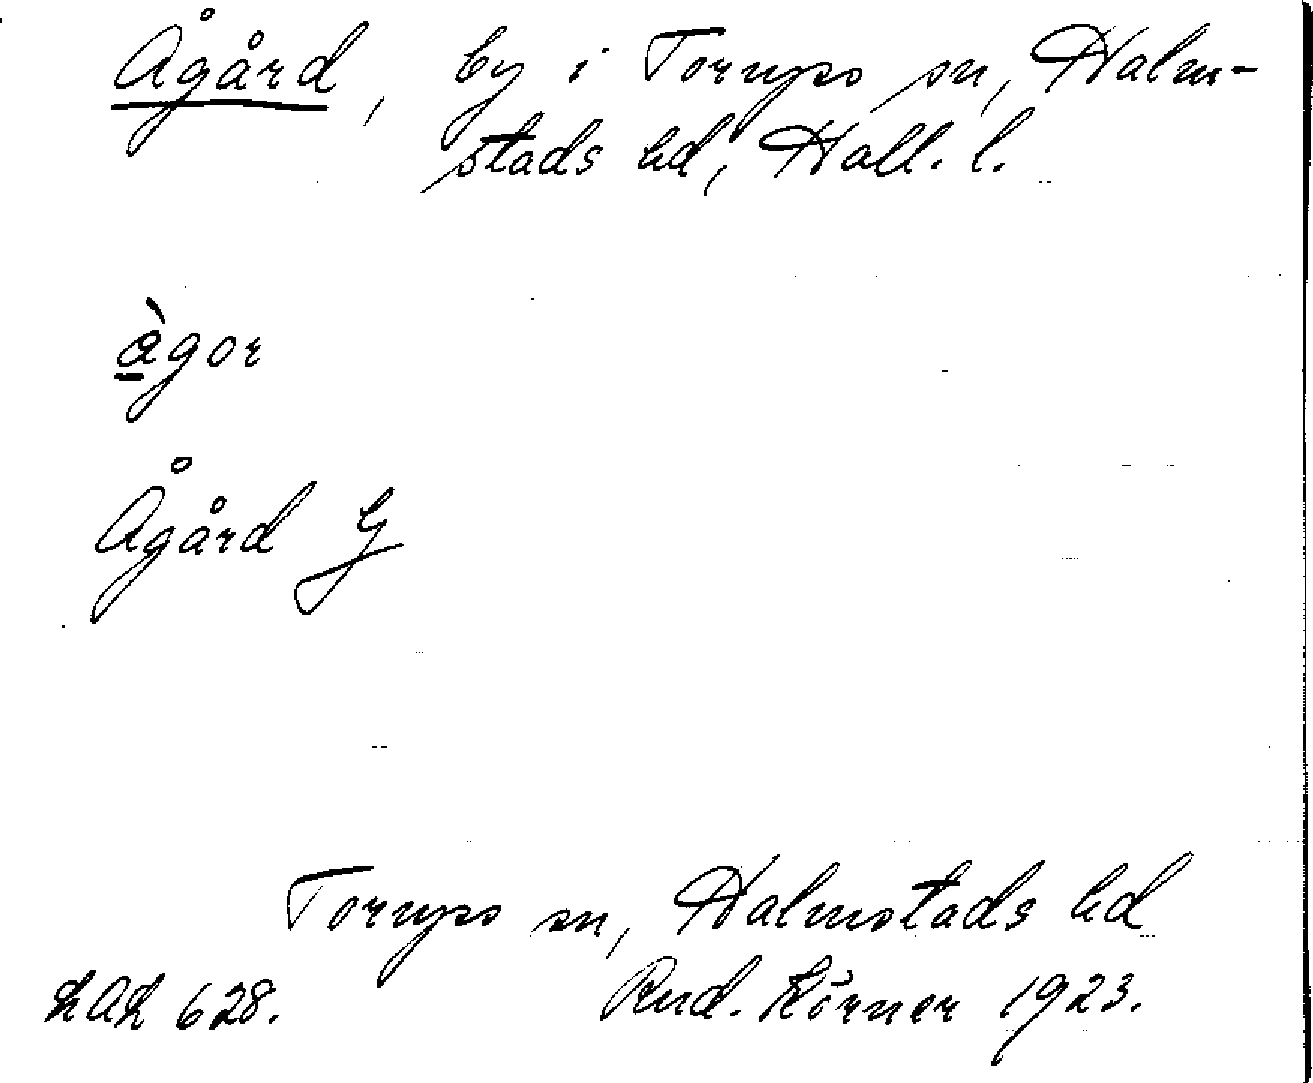 Ågård, by i Torups sn, Halm-
stads hd, Hall. l.
àgor
Ågård G
Torups sn, Halmstads hd
LAL 628. Rud. Körner 1923.